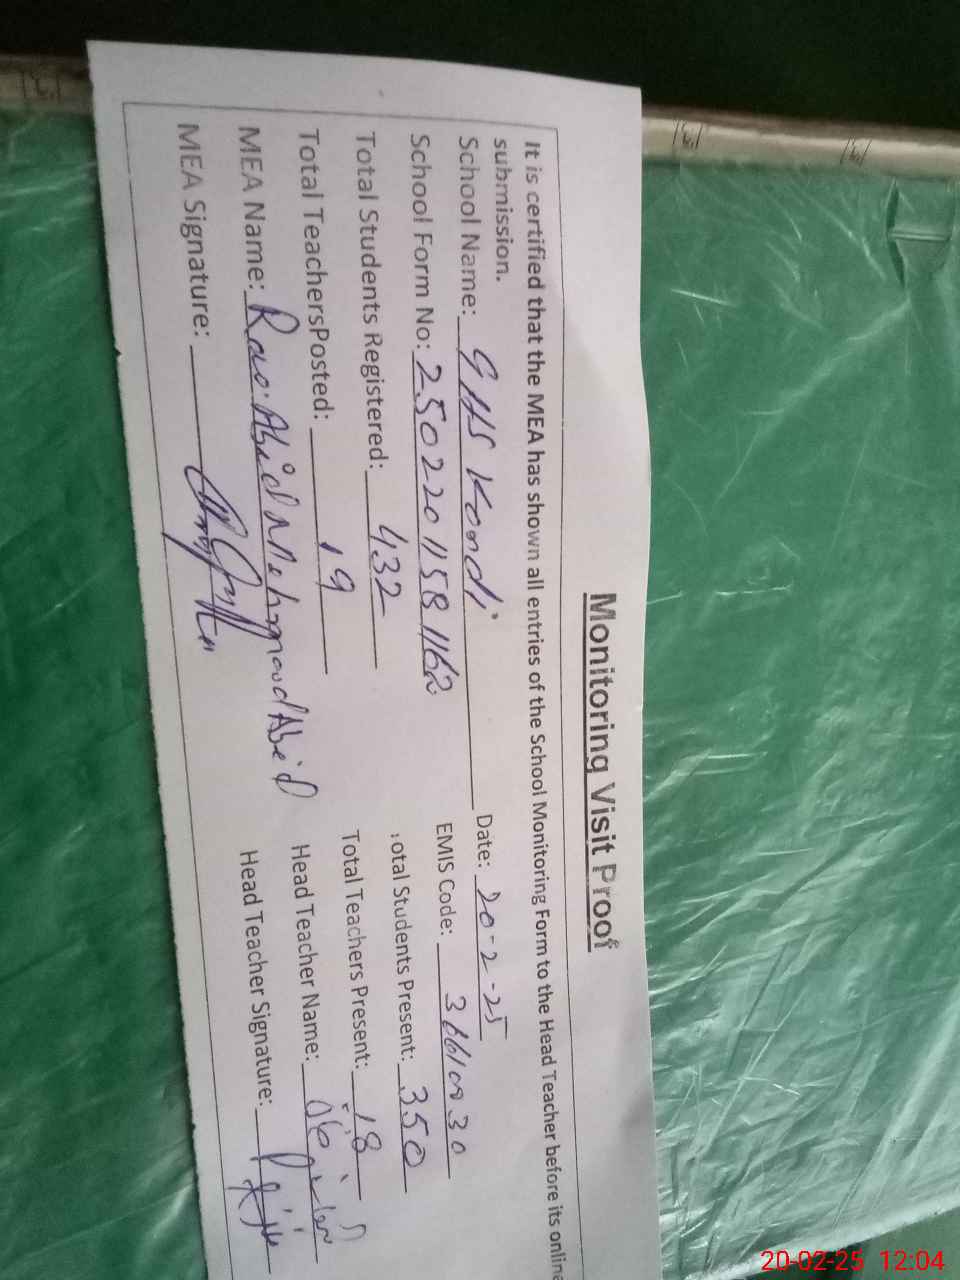 Monitoring Visit Proof
It is certified that the MEA has shown all entries of the School Monitoring Form to the Head Teacher before its online
submission.
School Name: GHS Koodi Date: 20-2-25
School Form No: 25022011581162 EMIS Code:
Total Students Registered: 432 otal Students Present: 350
Total TeachersPosted: 19 Total Teachers Present: 18
MEA Name: Rao Abid Mehmood Abid Head Teacher Name:
MEA Signature: Head Teacher Signature:
20-02-25 12:04